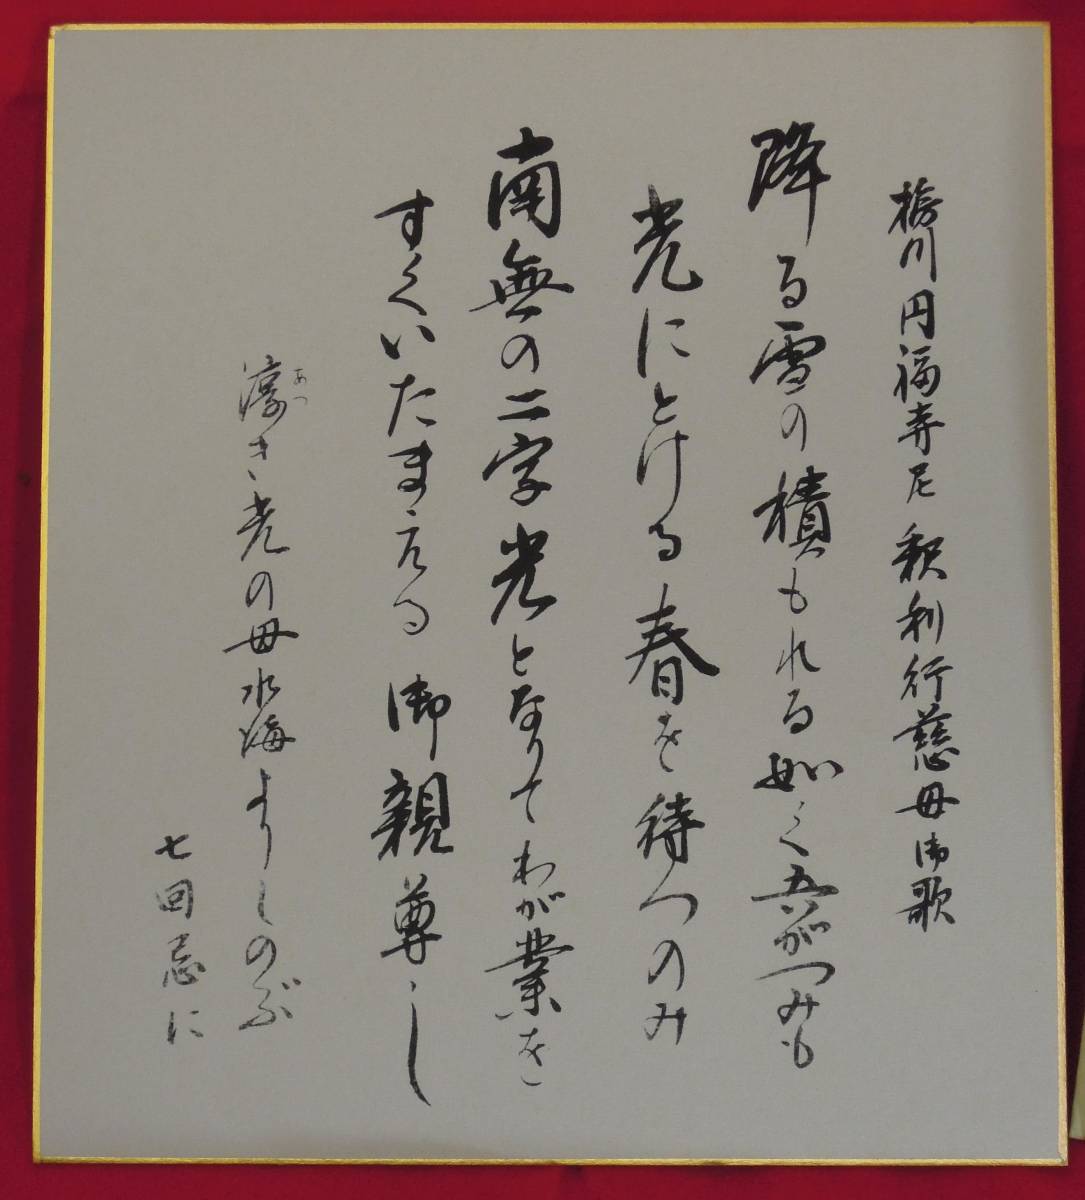 川円福寺尼 釈利行慈母御歌
降る雪の積もれる如く吾がつみも
光にとける春を待つのみ
南無の二字光となりてわが業を
すくいたまえる御親尊し
あつ
淳き光の母水海よりしのぶ
七回忌に